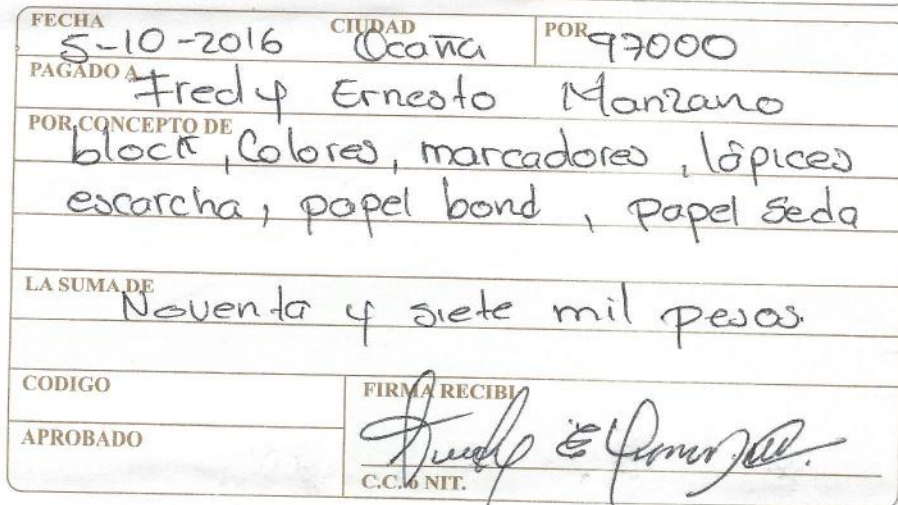 FECHA 5-10-2016 CIUDAD Ocaña POR 97000
PAGADO A Fredy Ernesto Manzano
POR CONCEPTO DE block, Colores, marcadores, lápices
escarcha, papel bond, papel seda
LA SUMA DE Noventa y siete mil pesos.
CODIGO FIRMA RECIBI
APROBADO
C.C. ó NIT.